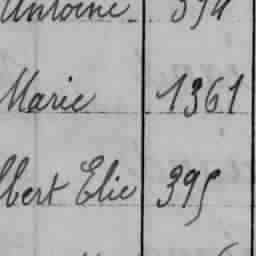 Antoine 394
Marie 1361
lbert Elie 395